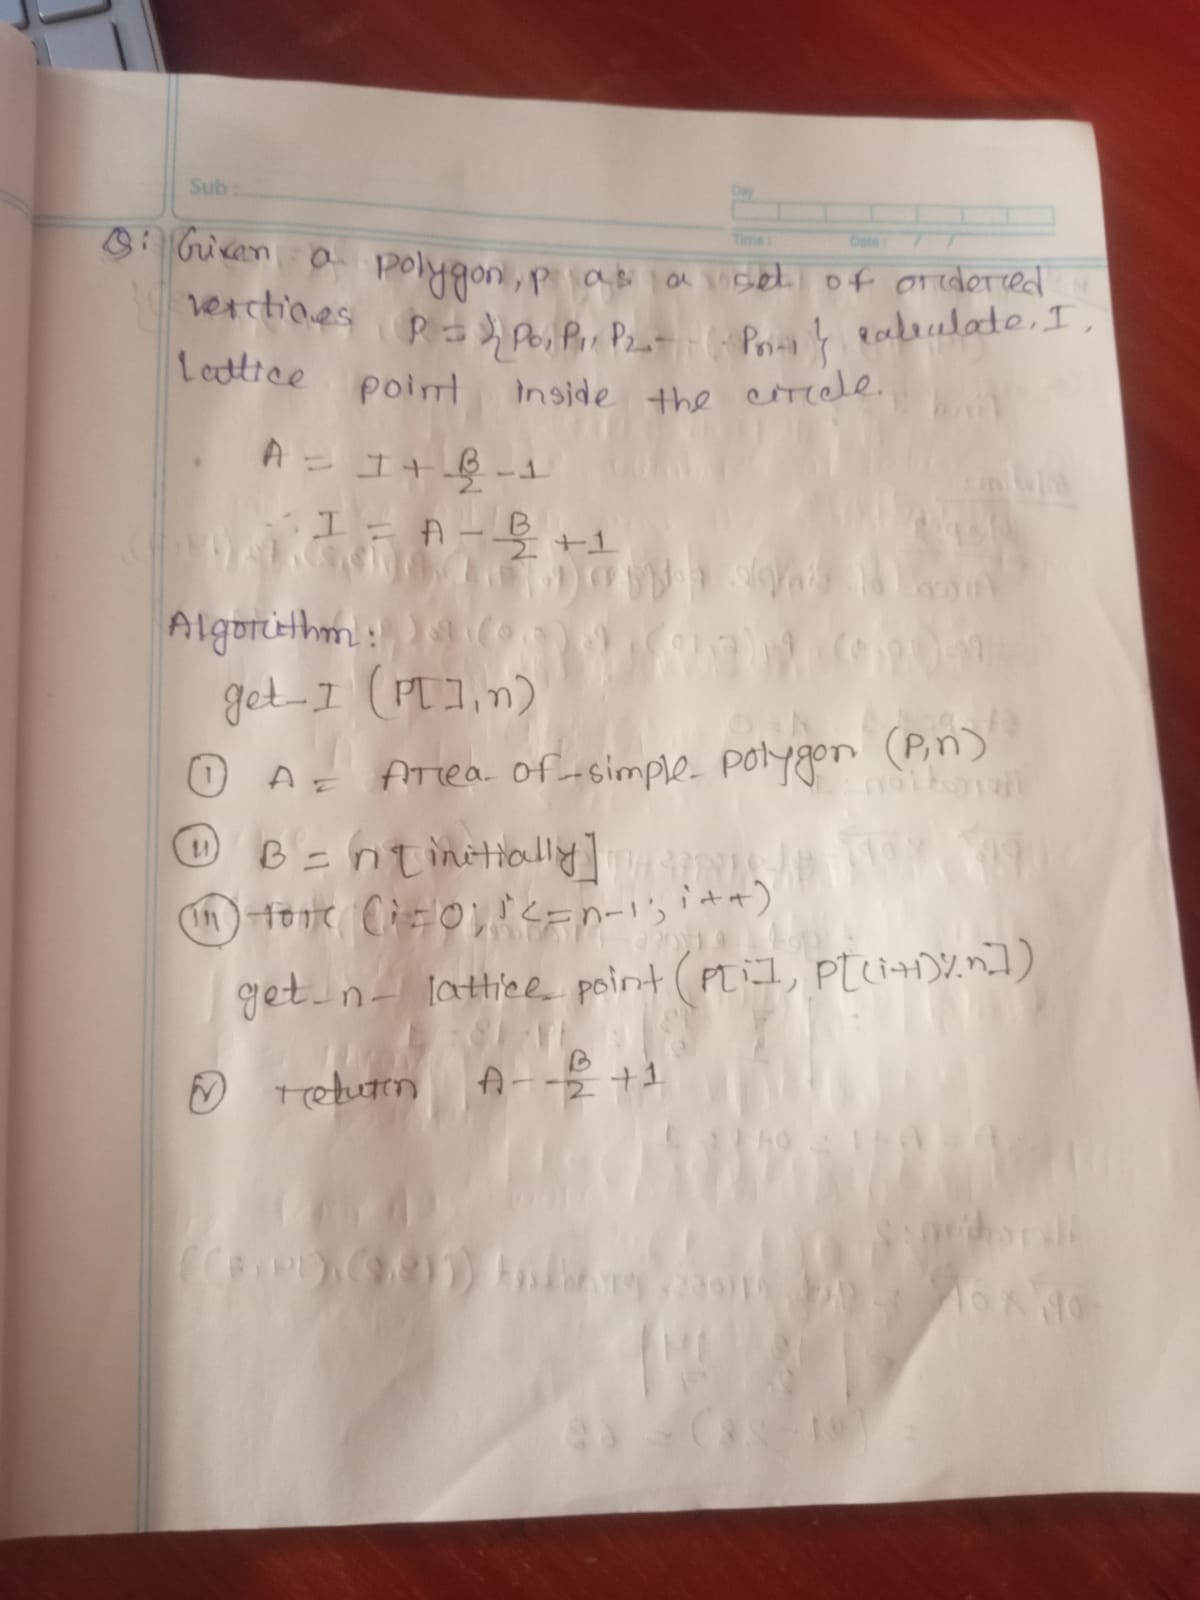 Sub :
Day
Time :
Date : / /
Q: Given a polygon, p as a set of ordered
vertices P = {P0, P1, P2 - - - Pn-1} calculate, I,
Lattice point inside the circle.
A = I + B/2 - 1
∴ I = A - B/2 + 1
Algorithm:
get-I (P[], n)
(i) A = Area-of-simple-polygon (P,n)
(ii) B = n [initially]
(iii) for (i=0; i<=n-1; i++)
get-n-lattice-point (P[i], P[(i+1)%n])
(iv) return A - B/2 + 1